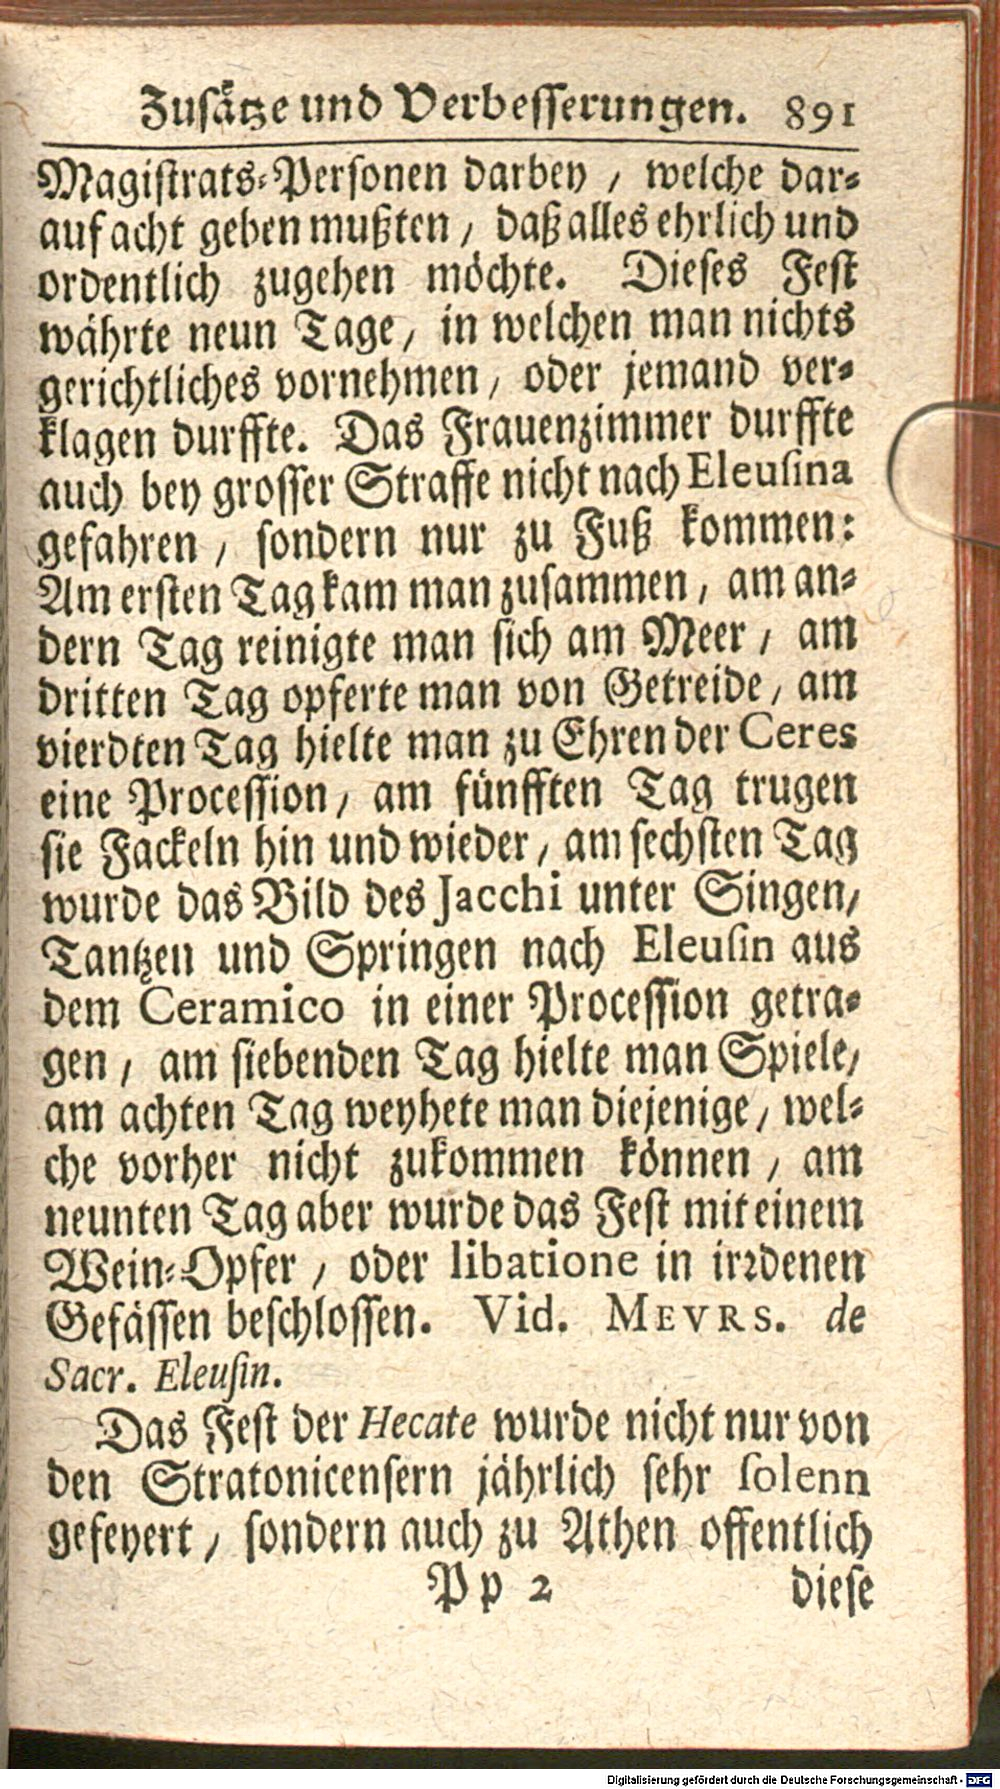 Zusätze und Verbesserungen. 891
Magistrats-Personen darbey / welche dar-
auf acht geben mußten / daß alles ehrlich und
ordentlich zugehen möchte. Dieses Fest
währte neun Tage / in welchen man nichts
gerichtliches vornehmen / oder jemand ver-
klagen durffte. Das Frauenzimmer durffte
auch bey grosser Straffe nicht nach Eleusina
gefahren / sondern nur zu Fuß kommen:
Am ersten Tag kam man zusammen / am an-
dern Tag reinigte man sich am Meer / am
dritten Tag opferte man von Getreide / am
vierdten Tag hielte man zu Ehren der Ceres
eine Procession / am fünfften Tag trugen
sie Fackeln hin und wieder / am sechsten Tag
wurde das Bild des Jacchi unter Singen /
Tantzen und Springen nach Eleusin aus
dem Ceramico in einer Procession getra-
gen / am siebenden Tag hielte man Spiele /
am achten Tag weyhete man diejenige / wel-
che vorher nicht zukommen können / am
neunten Tag aber wurde das Fest mit einem
Wein-Opfer / oder libatione in irrdenen
Gefässen beschlossen. Vid. MEVRS. de
Sacr. Eleusin.
Das Fest der Hecate wurde nicht nur von
den Stratonicensern jährlich sehr solenn
gefeyert / sondern auch zu Athen offentlich
Pp 2 diese
Digitalisierung gefördert durch die Deutsche Forschungsgemeinschaft - DFG